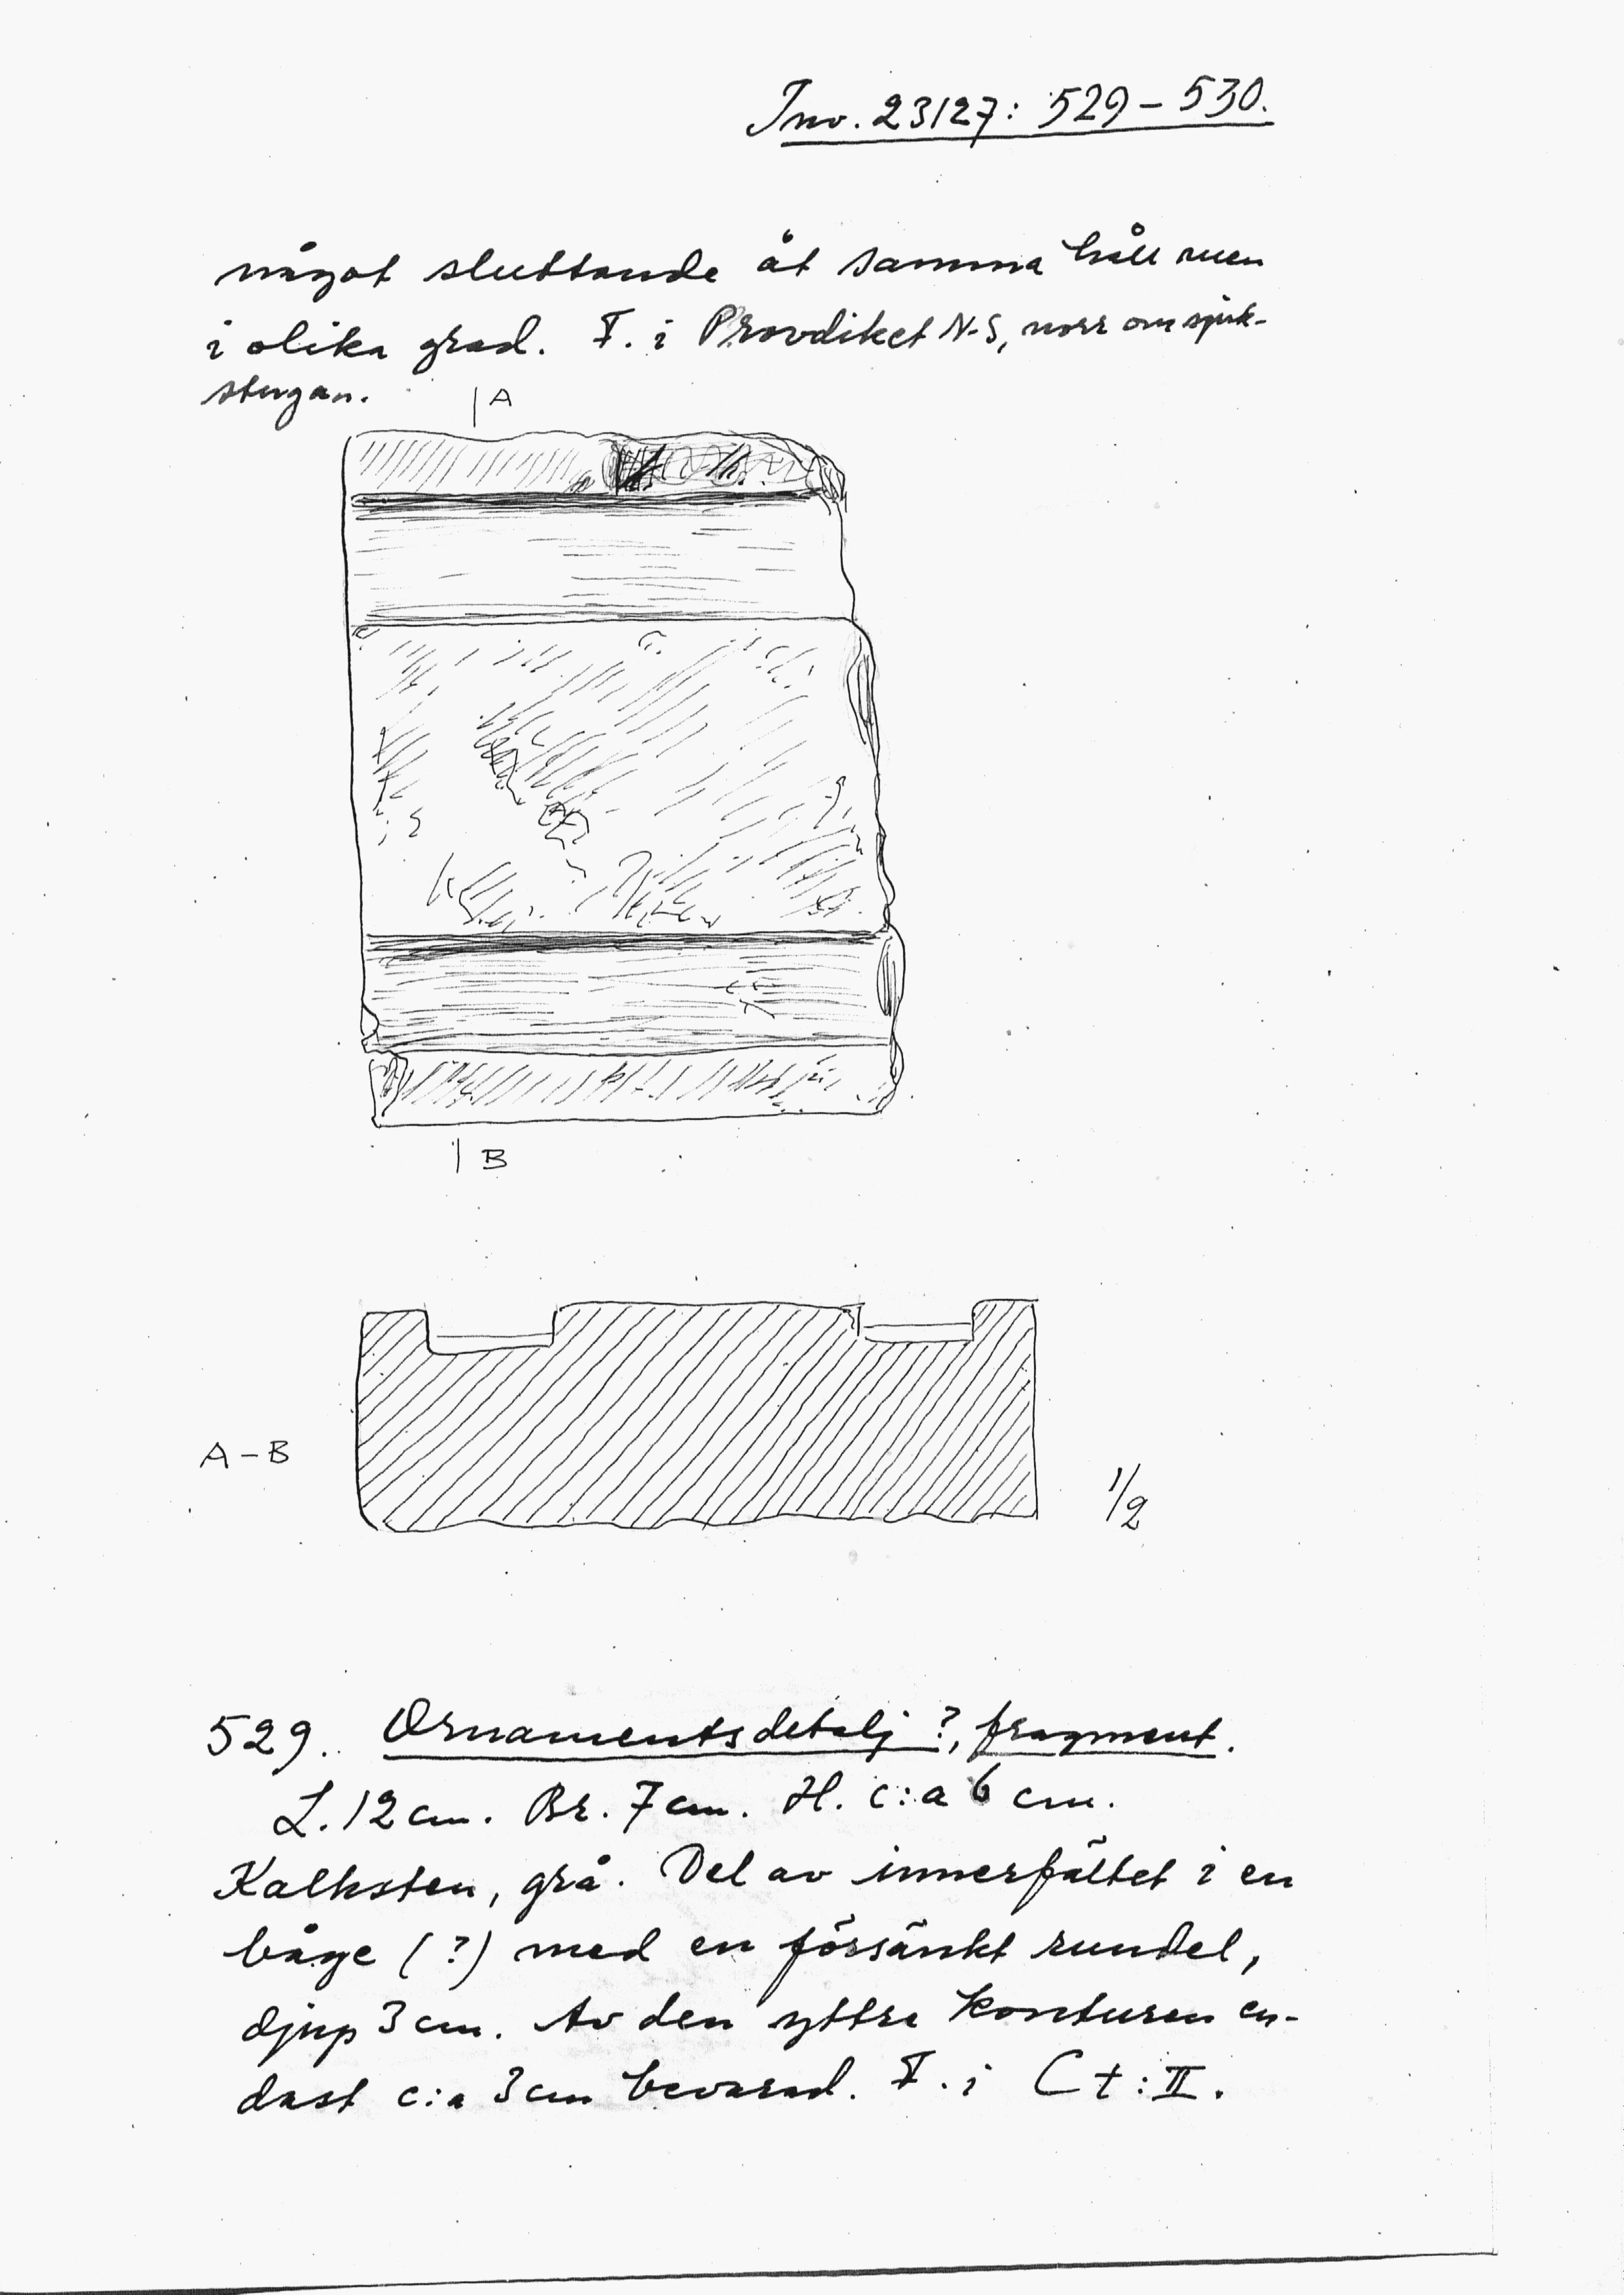 Inv. 23127: 529 – 530.
något sluttande åt samma håll men
i olika grad. F. i Provdiket N-S, norr om sjuk-
stugan.
A
B
A – B
1/2
529. Ornamentsdetalj ?, fragment.
L. 12 cm. Br. 7 cm. H. c:a 6 cm.
Kalksten, grå. Del av innerfältet i en
båge (?) med en försänkt rundel,
djup 3 cm. Av den yttre konturen en-
dast c:a 3 cm bevarad. F. i C t : II.